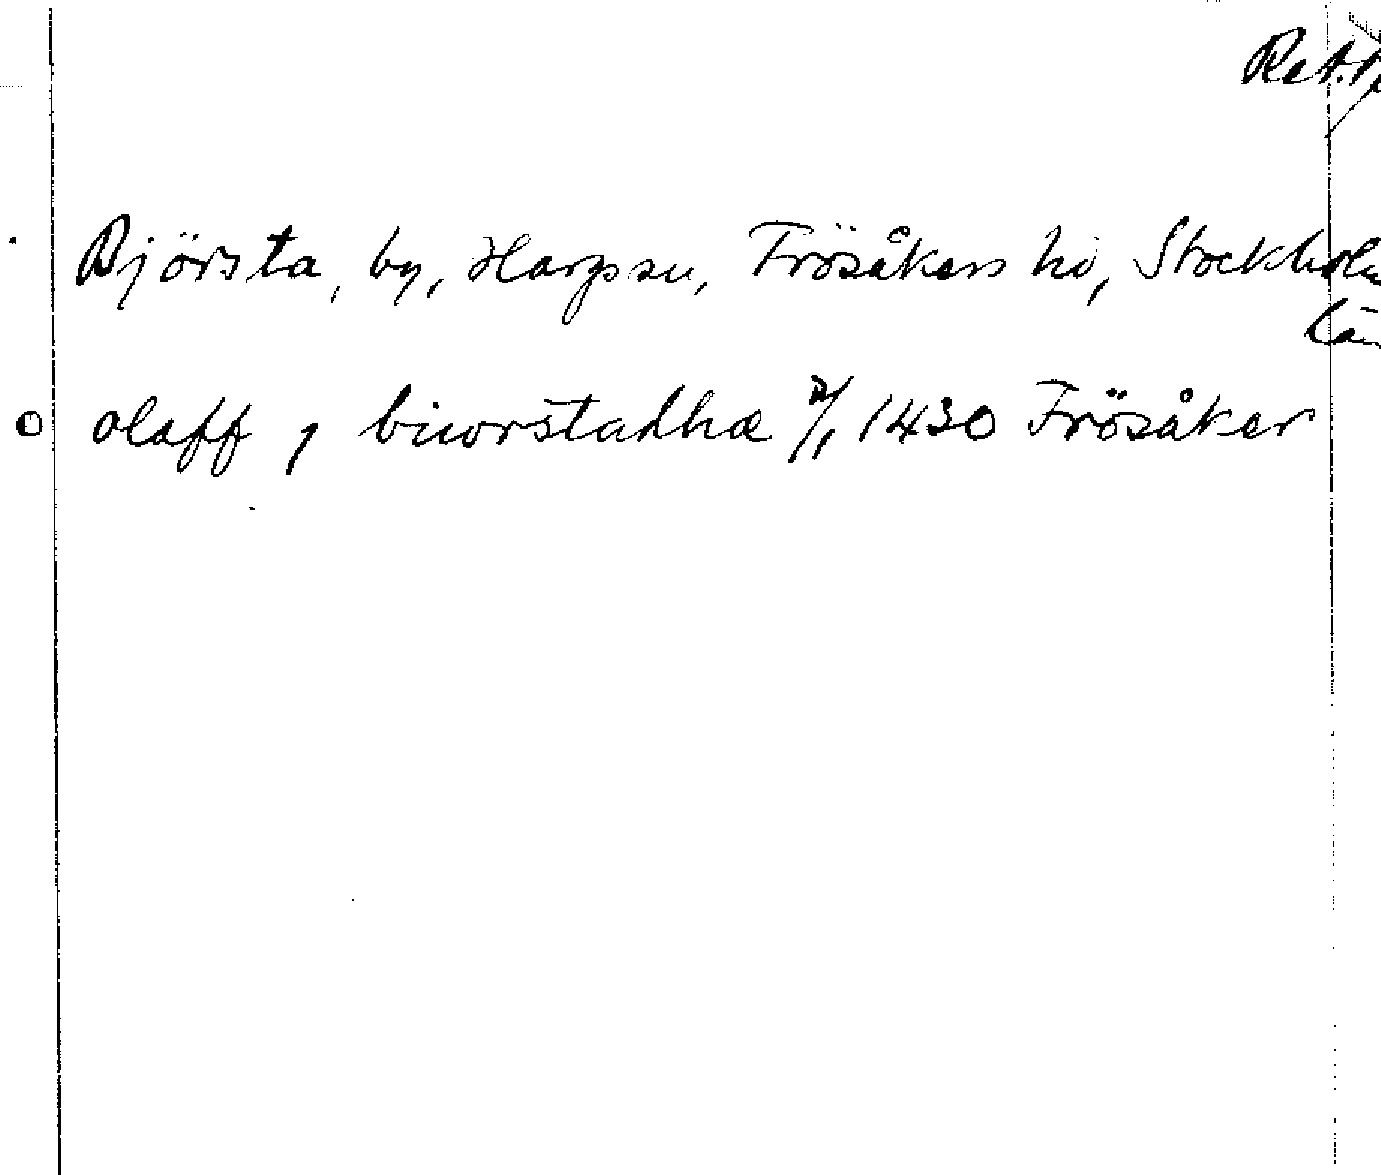 Ret.
Björsta, by, Hargs sn, Frösåkers hd, Stockholm
län
olaff j biworstadhæ 2/1 1430 Frösåker